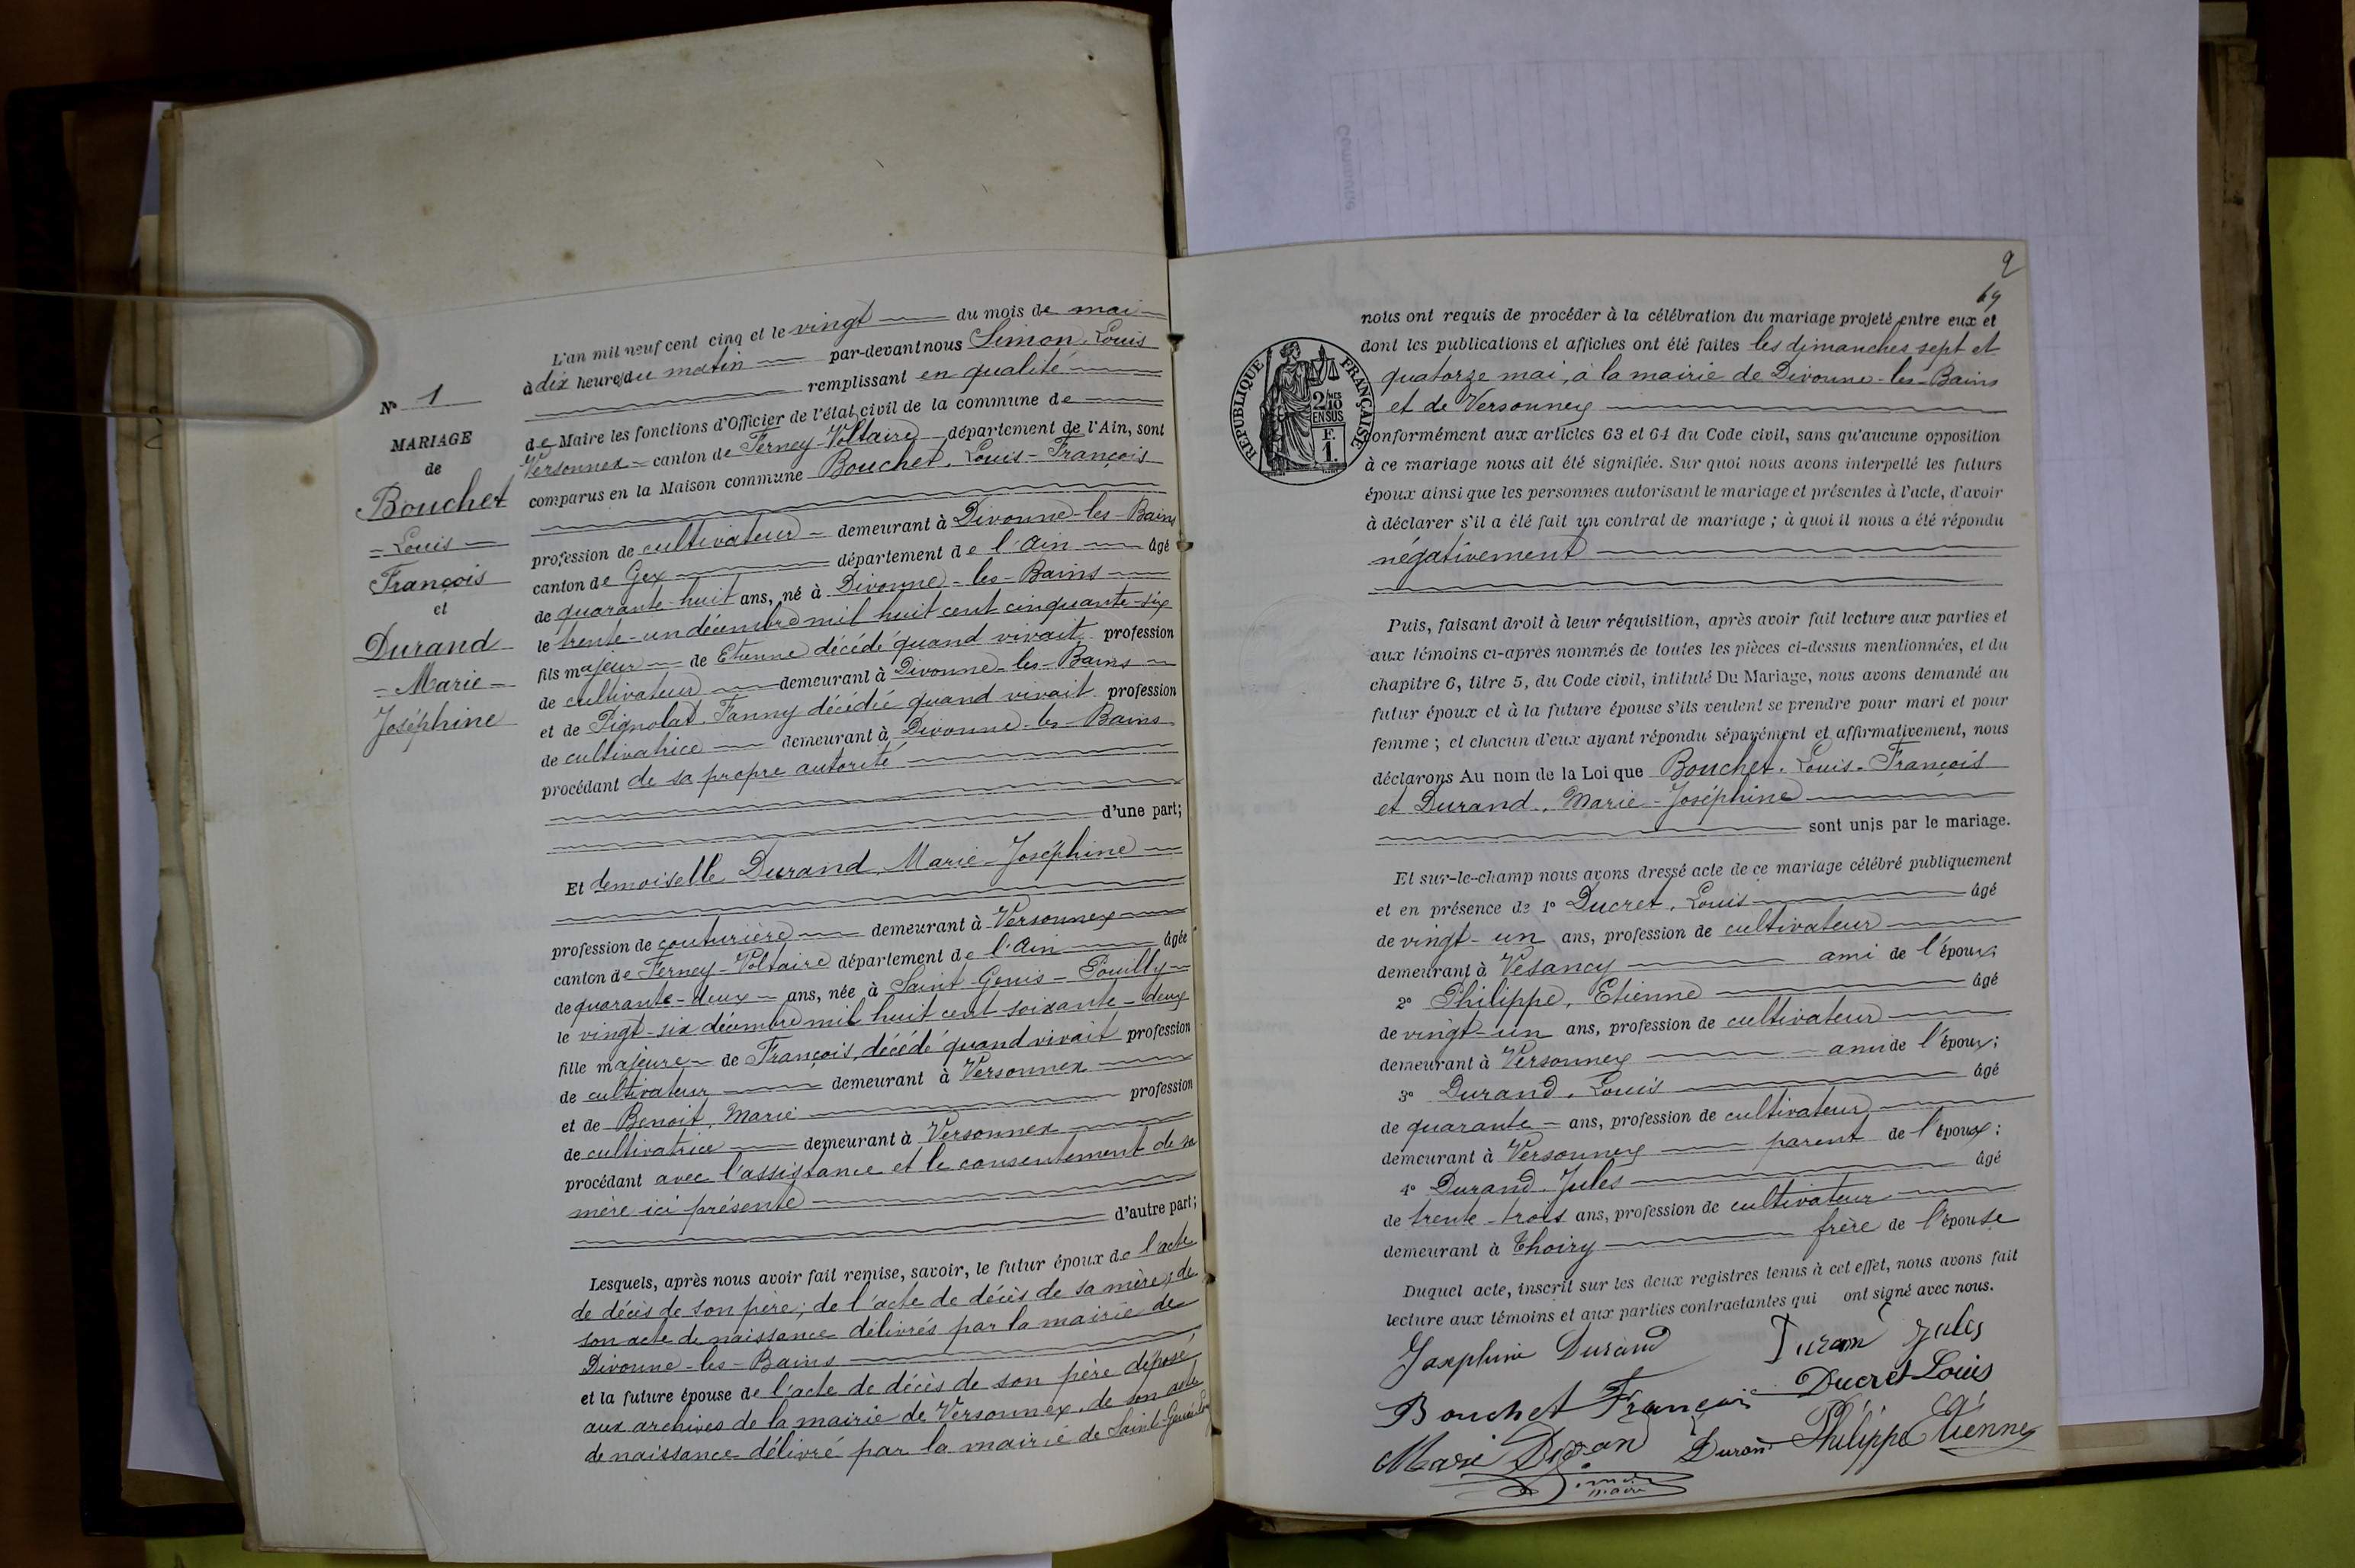 N° 1
MARIAGE
de
Bouchet
Louis
François
et
Durand
Marie
Joséphine
L'an mil neuf cent cinq et le vingt du mois de mai
à dix heures du matin par-devant nous Simon, Louis
remplissant en qualité
de Maire les fonctions d'Officier de l'état civil de la commune de
Versonnex canton de Ferney-Voltaire département de l'Ain, sont
comparus en la Maison commune Bouchet, Louis-François
profession de cultivateur demeurant à Divonne-les-Bains
canton de Gex département de l'Ain âgé
de quarante-huit ans, né à Divonne-les-Bains
le trente-un décembre mil huit cent cinquante-six
fils majeur de Etienne décédé quand vivait profession
de cultivateur demeurant à Divonne-les-Bains
et de Pignolat, Fanny décédée quand vivait profession
de cultivatrice demeurant à Divonne-les-Bains
procédant de sa propre autorité
d'une part;
Et demoiselle Durand, Marie-Joséphine
profession de couturière demeurant à Versonnex
canton de Ferney-Voltaire département de l'Ain âgée
de quarante-deux ans, née à Saint Genis-Pouilly
le vingt-six décembre mil huit cent soixante-deux
fille majeure de François, décédé quand vivait profession
de cultivateur demeurant à Versonnex
et de Benoit, Marie profession
de cultivatrice demeurant à Versonnex
procédant avec l'assistance et le consentement de sa
mère ici présente
d'autre part;
Lesquels, après nous avoir fait remise, savoir, le futur époux de l'acte
de décès de son père; de l'acte de décès de sa mère; de
son acte de naissance délivrés par la mairie de
Divonne-les-Bains
et la future épouse de l'acte de décès de son père déposé
aux archives de la mairie de Versonnex, de son acte
de naissance délivré par la mairie de Saint-Genis
9
69
RÉPUBLIQUE FRANÇAISE
2/10 MES
EN SUS
F.
1.
nous ont requis de procéder à la célébration du mariage projeté entre eux et
dont les publications et affiches ont été faites les dimanches sept et
quatorze mai, à la mairie de Divonne-les-Bains
et de Versonnex
onformément aux articles 63 et 64 du Code civil, sans qu'aucune opposition
à ce mariage nous ait été signifiée. Sur quoi nous avons interpellé les futurs
époux ainsi que les personnes autorisant le mariage et présentes à l'acte, d'avoir
à déclarer s'il a été fait un contrat de mariage; à quoi il nous a été répondu
négativement
Puis, faisant droit à leur réquisition, après avoir fait lecture aux parties et
aux témoins ci-après nommés de toutes les pièces ci-dessus mentionnées, et du
chapitre 6, titre 5, du Code civil, intitulé Du Mariage, nous avons demandé au
futur époux et à la future épouse s'ils veulent se prendre pour mari et pour
femme; et chacun d'eux ayant répondu séparément et affirmativement, nous
déclarons Au nom de la Loi que Bouchet, Louis-François
et Durand, Marie-Joséphine
sont unis par le mariage.
Et sur-le-champ nous avons dressé acte de ce mariage célébré publiquement
et en présence de 1° Ducret, Louis âgé
de vingt-un ans, profession de cultivateur
demeurant à Vesancy ami de l'époux;
2° Philippe, Etienne âgé
de vingt-un ans, profession de cultivateur
demeurant à Versonnex ami de l'époux;
3° Durand, Louis âgé
de quarante ans, profession de cultivateur
demeurant à Versonnex parent de l'époux;
4° Durand, Jules âgé
de trente-trois ans, profession de cultivateur
demeurant à Thoiry frère de l'épouse
Duquel acte, inscrit sur les deux registres tenus à cet effet, nous avons fait
lecture aux témoins et aux parties contractantes qui ont signé avec nous.
Josephine Durand Jules
Bouchet François Ducret Louis
Marie Durand Philippe Etienne
maire